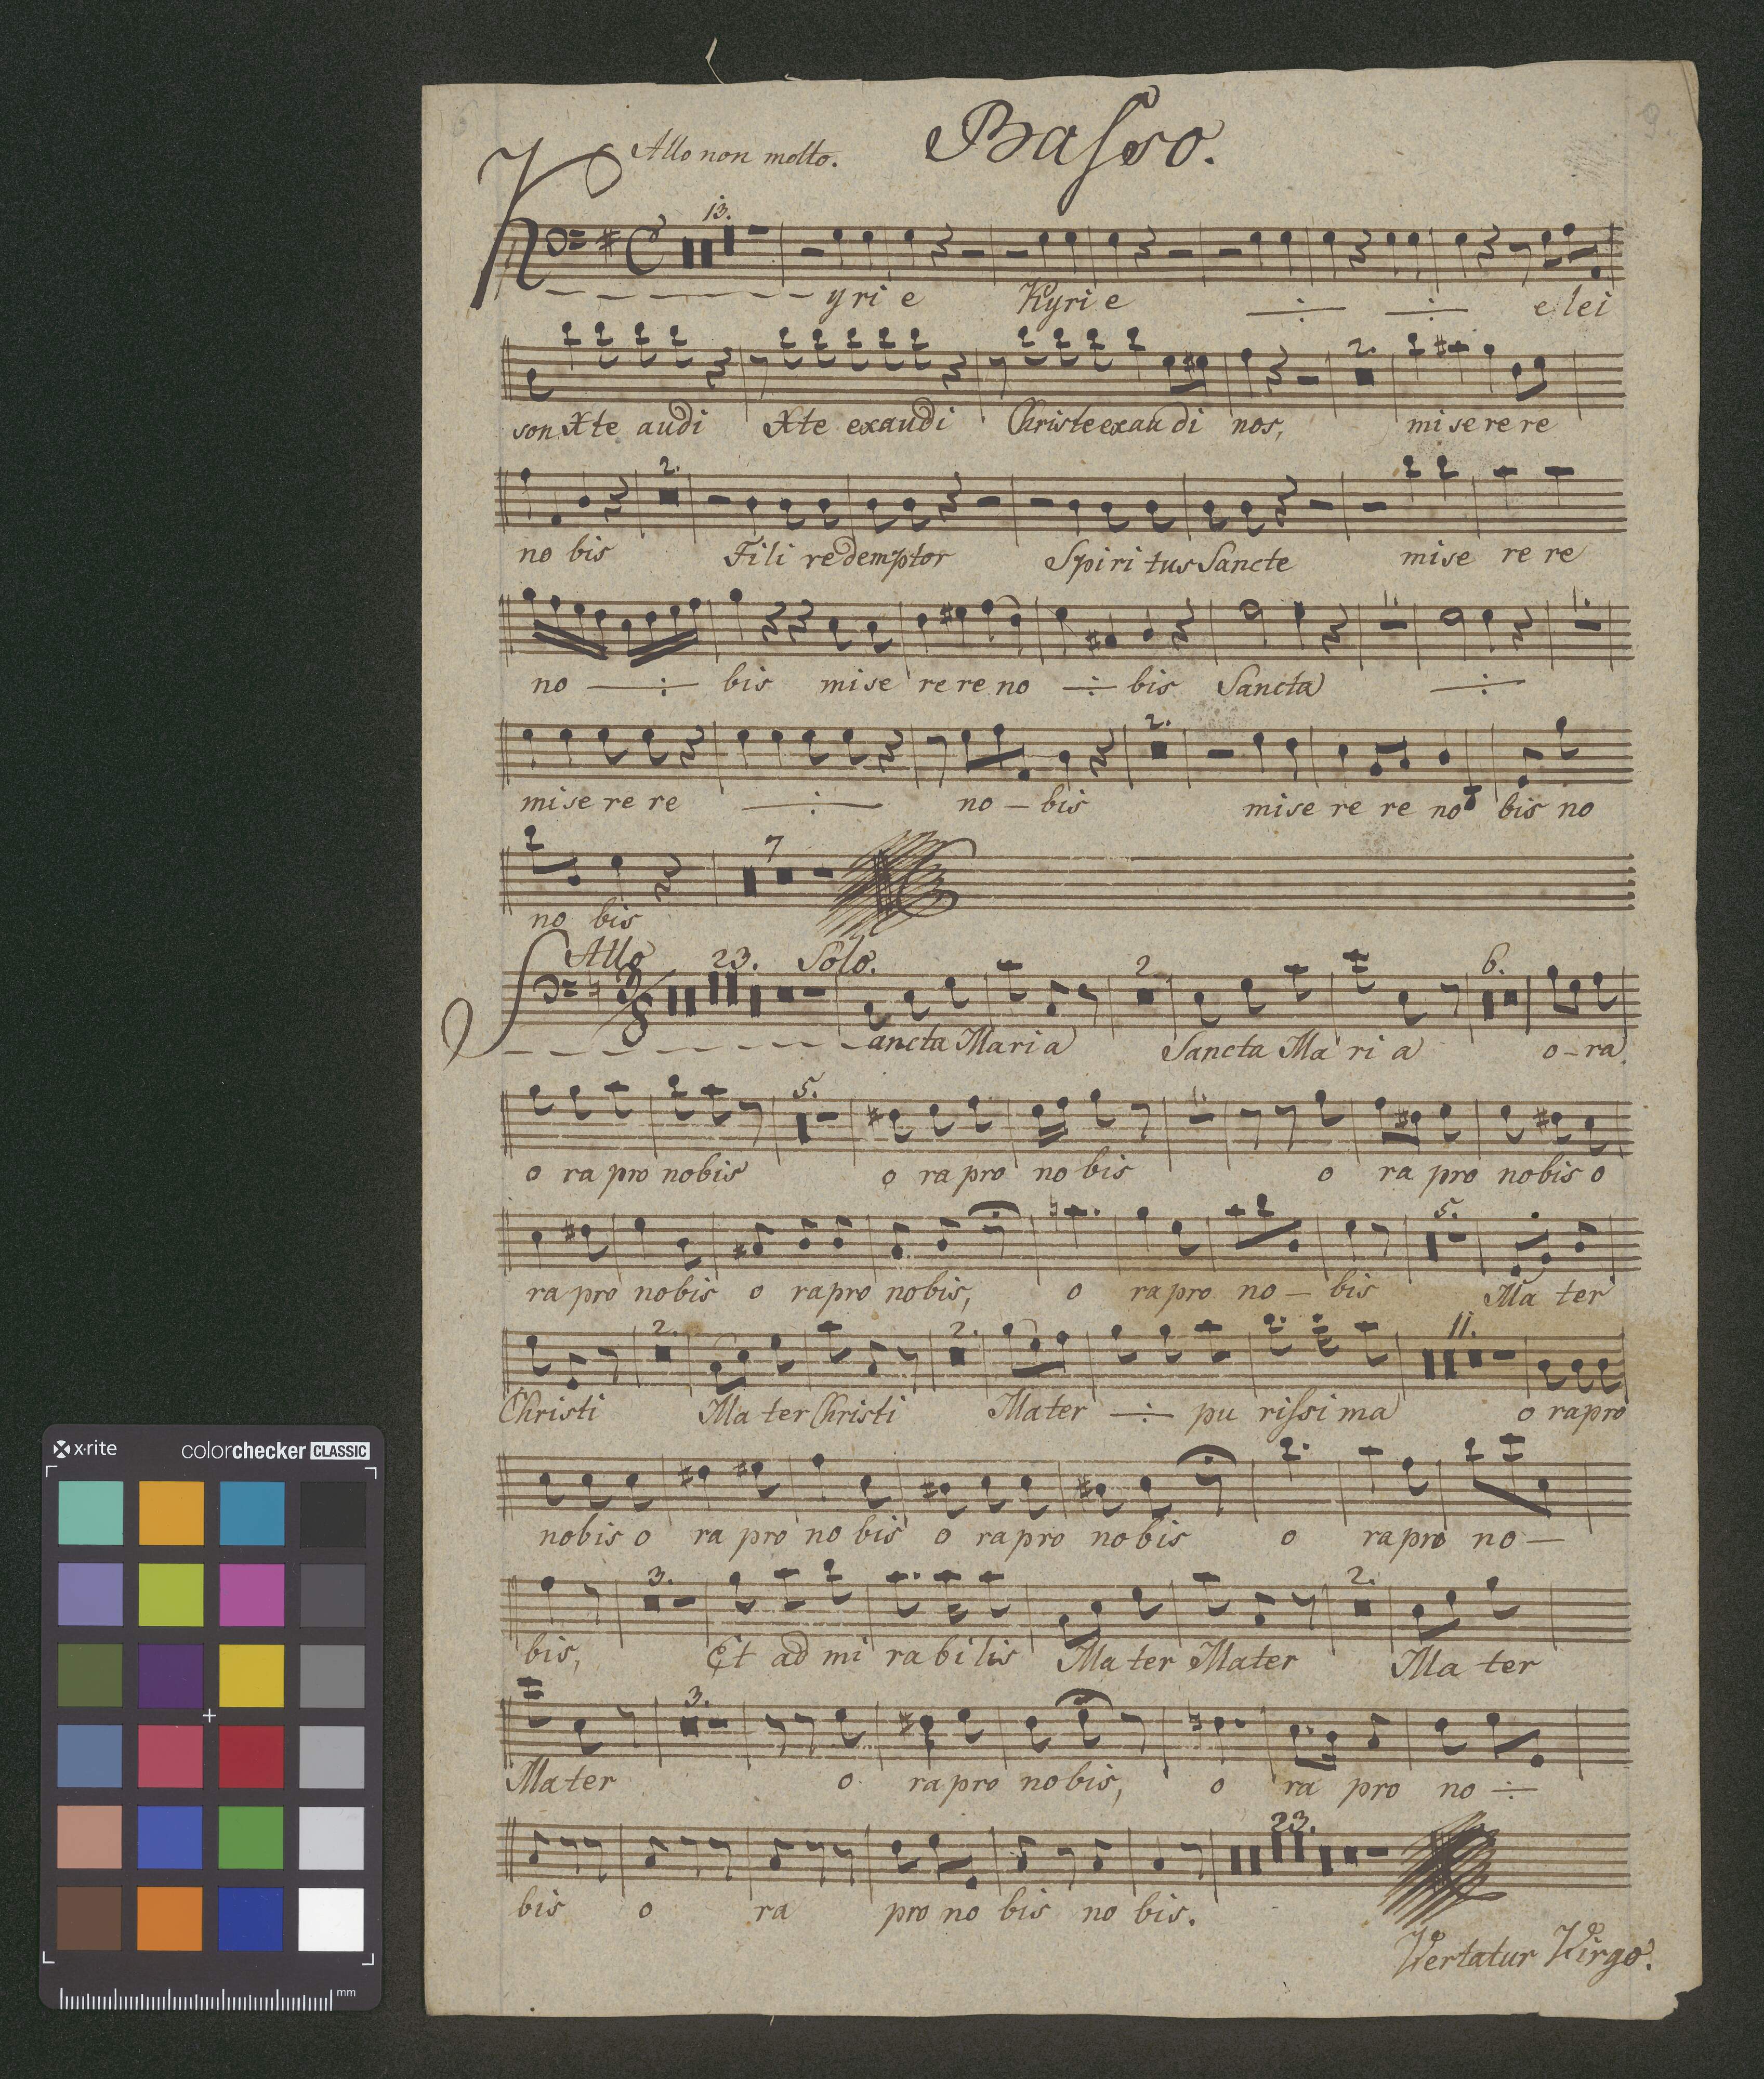 Basso.
9.
Allo non molto.
13.
Kyrie Kyrie elei
2.
son Xte audi Xte exaudi Christe exaudi nos, miserere
2.
nobis Fili redemptor Spiritus Sancte miserere
1.
1.
no bis miserere no bis Sancta
2.
miserere no - bis miserere no bis no
7
no bis
Allo 23. Solo. 2 6.
3/8
Sancta Maria Sancta Maria o - ra
5. 1.
o ra pro nobis o ra pro nobis o ra pro nobis o
5.
ra pro nobis o ra pro nobis, o ra pro no - bis Mater
2. 2. 11.
Christi Mater Christi Mater pu rissima o ra pro
nobis o ra pro nobis o ra pro nobis o ra pro no -
3. 2.
bis, Et admirabilis Mater Mater Mater
3.
Mater o ra pro nobis, o ra pro no
23.
bis o ra pro no bis no bis.
Vertatur Virgo.
x-rite colorchecker CLASSIC
mm